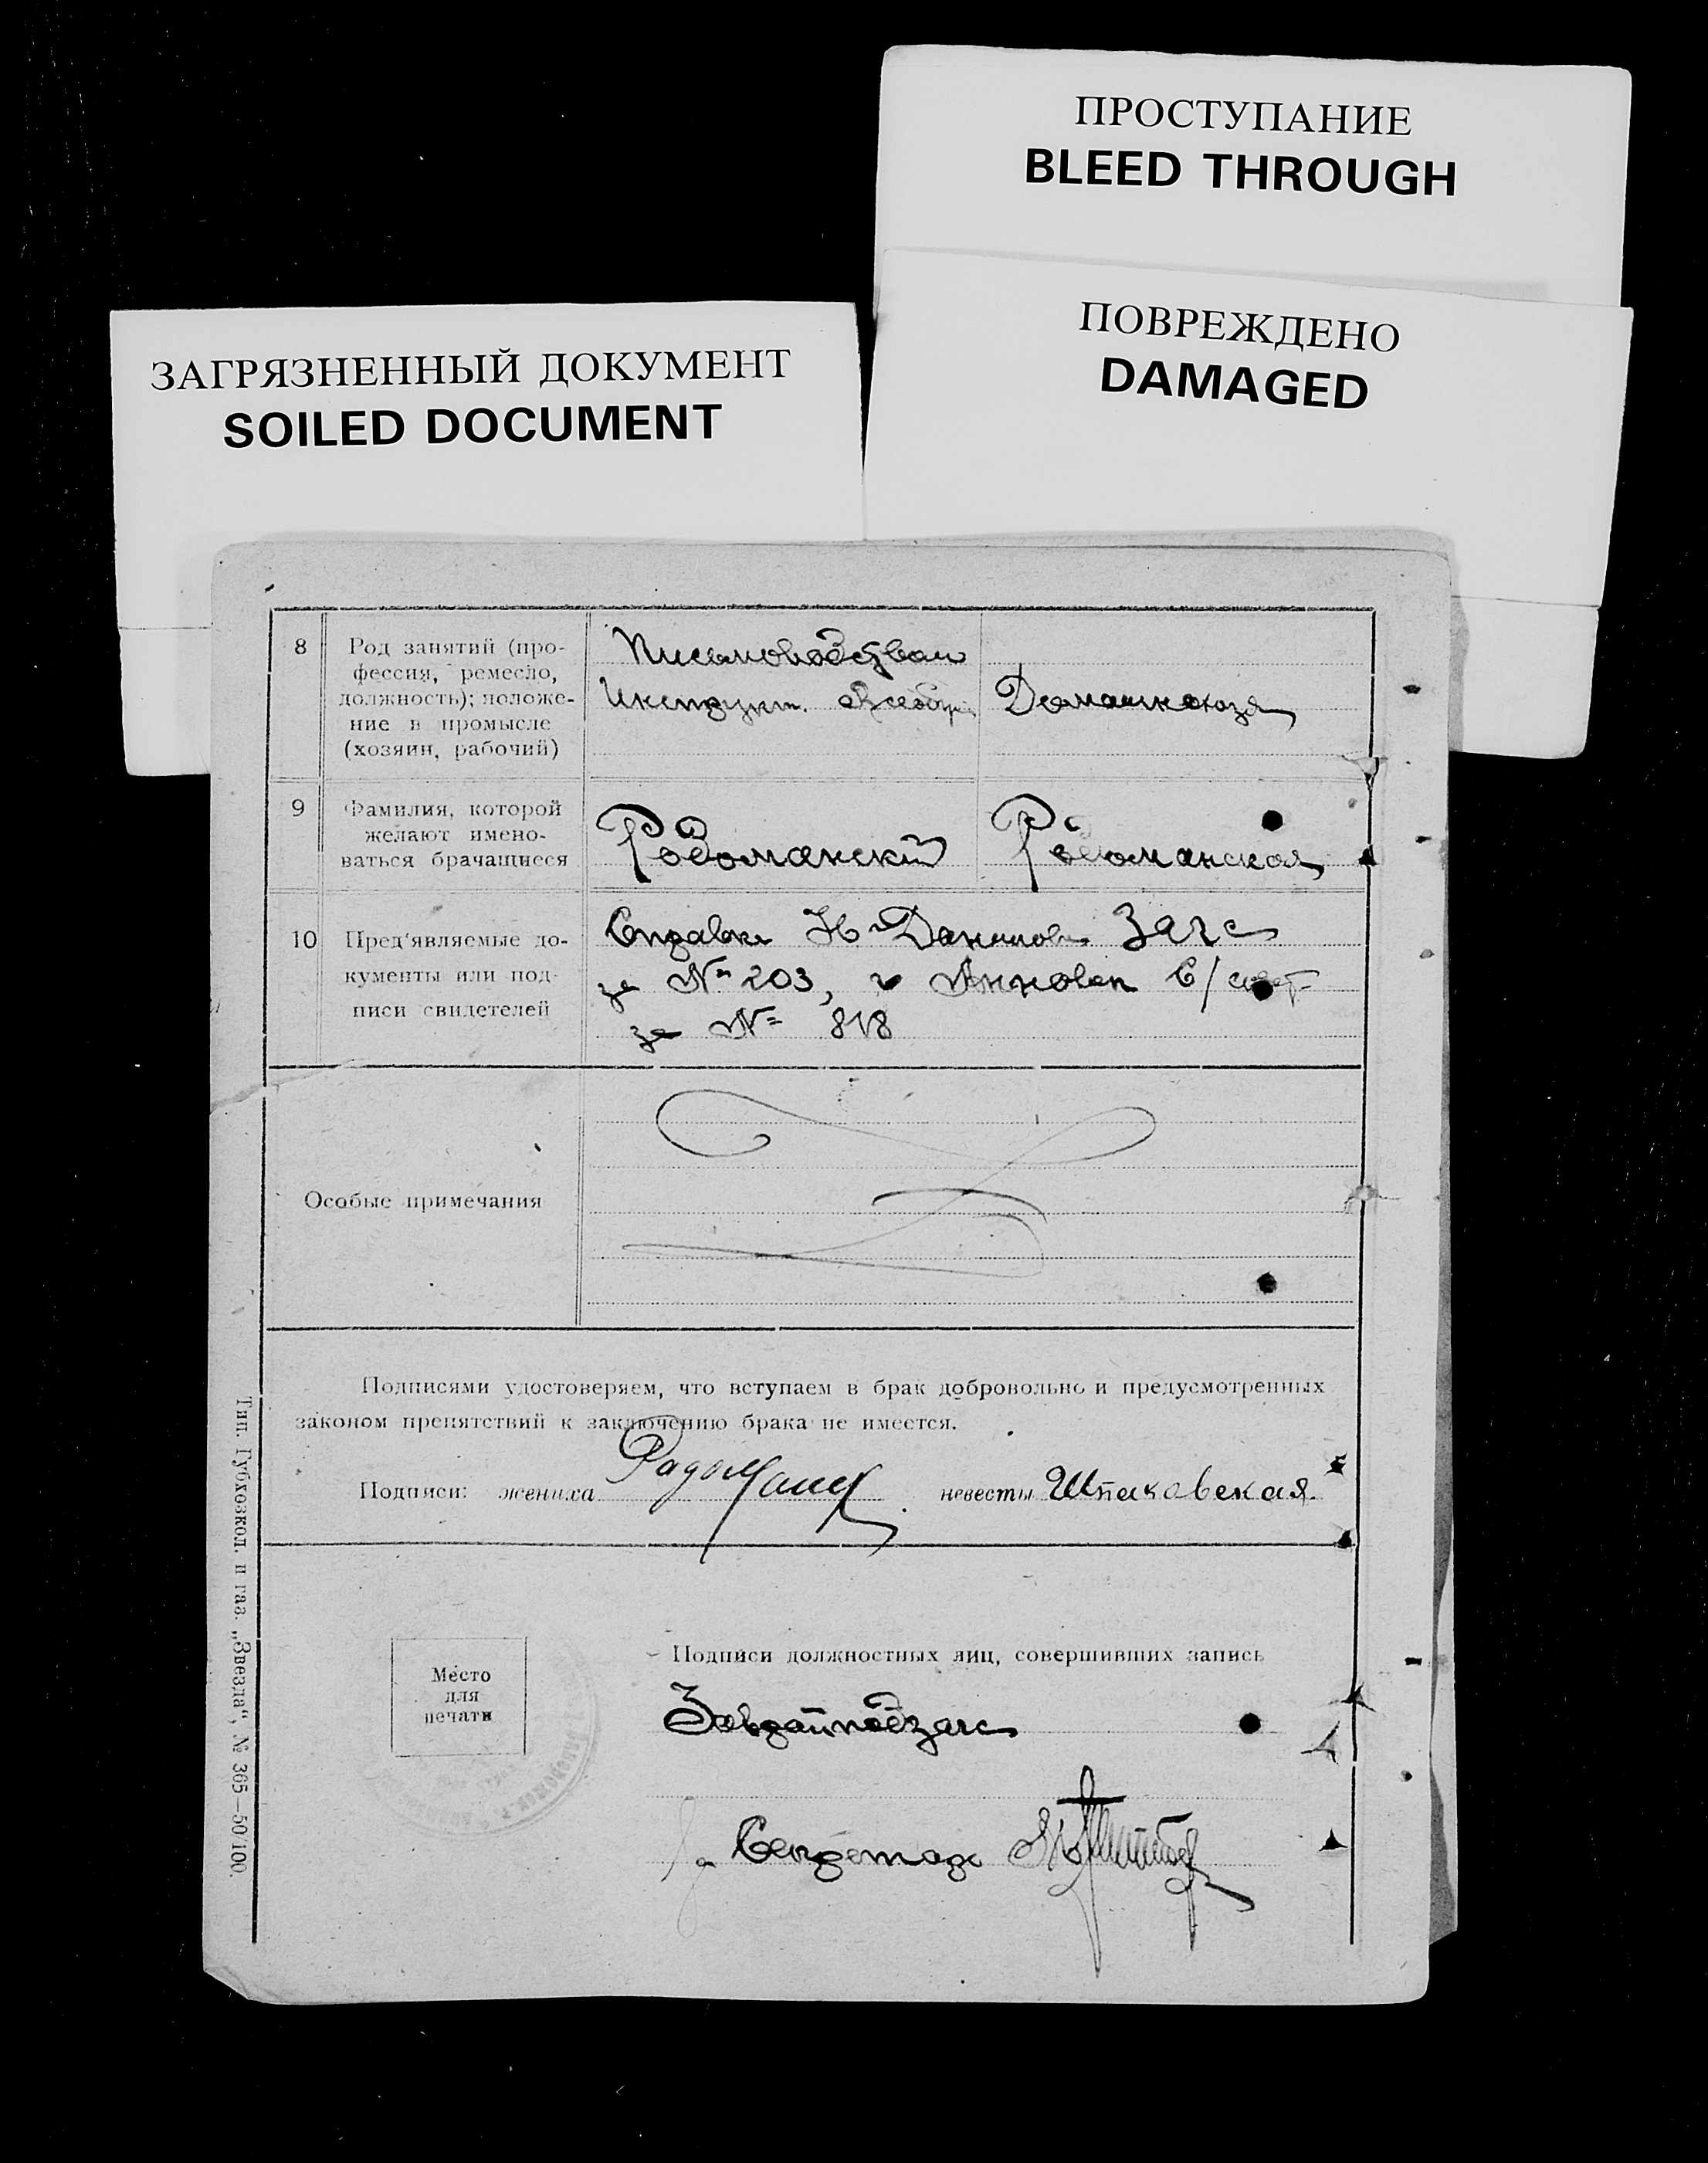 ПРОСТУПАНИЕ
BLEED THROUGH
ПОВРЕЖДЕНО
DAMAGED
ЗАГРЯЗНЕННЫЙ ДОКУМЕНТ
SOILED DOCUMENT
8
Род занятий (про-
фессия, ремесло,
должность); положе-
ние в промысле
(хозяин, рабочий)
Письмоводством
Инструкт.
Домашн хозя
9
Фамилия, которой
желают имено-
ваться брачащиеся
Родоманский
Родоманская
10
Пред'являемые до-
кументы или под-
писи свидетелей
Справки Загс
за № 203, и С/совет
за № 818
Особые примечания
Подписями удостоверяем, что вступаем в брак добровольно и предусмотренных
законом препятствий к заключению брака не имеется.
Подписи: жениха невесты Шпаковская.
Место
для
печати
Подписи должностных лиц, совершивших запись
Заврайподзагс
Секретарь
Тип. Губховкол. п газ. „Звезда", № 365—50/100.